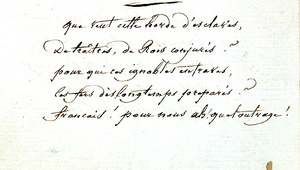 que veut cette horde d'esclaves,
de traîtres, de Rois conjurés ?
pour qui ces ignobles entraves,
ces fers dès longtemps préparés ?
français ! pour nous ah! quel outrage !